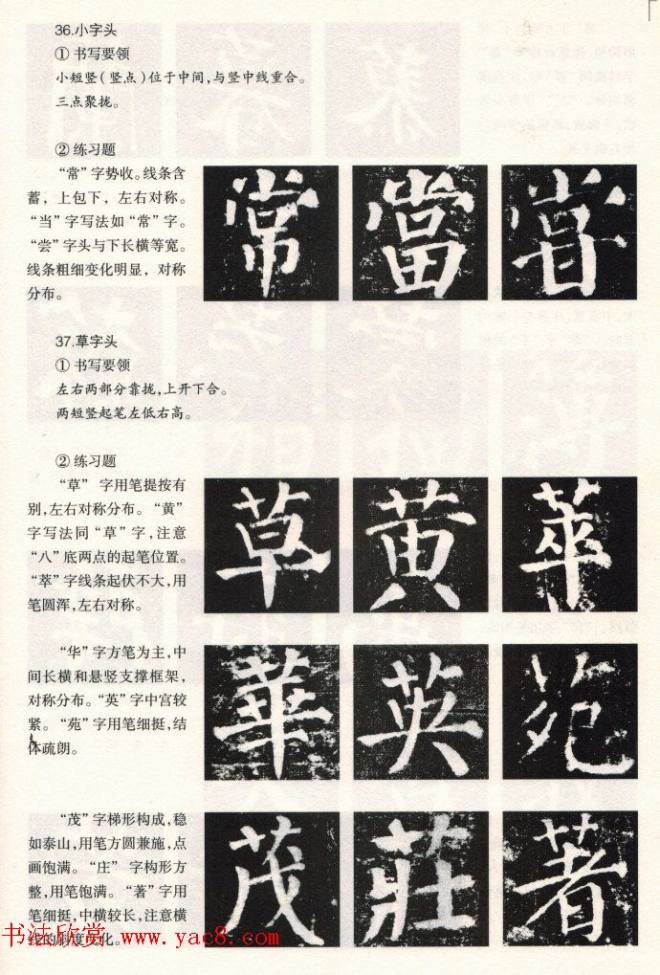 36.小字头
①书写要领
小短竖(竖点)位于中间,与竖中线重合。
三点聚拢。
②练习题
“常”字势收。线条含
蓄，上包下，左右对称。
“当”字写法如“常”字。
“尝”字头与下长横等宽。
线条粗细变化明显，对称
分布。
常 當 甞
37.草字头
①书写要领
左右两部分靠拢,上开下合。
两短竖起笔左低右高。
②练习题
“草”字用笔提按有
别,左右对称分布。“黄”
字写法同“草”字,注意
“八”底两点的起笔位置。
“萃”字线条起伏不大,用
笔圆浑,左右对称。
草 黄 萃
“华”字方笔为主,中
间长横和悬竖支撑框架,
对称分布。“英”字中宫较
紧。“苑”字用笔细挺,结
体疏朗。
華 英 苑
“茂”字梯形构成,稳
如泰山,用笔方圆兼施,点
画饱满。“庄”字构形方
整,用笔饱满。“著”字用
笔细挺,中横较长,注意横
线的斜度变化。
茂 莊 著
书法欣赏 www.yac8.com